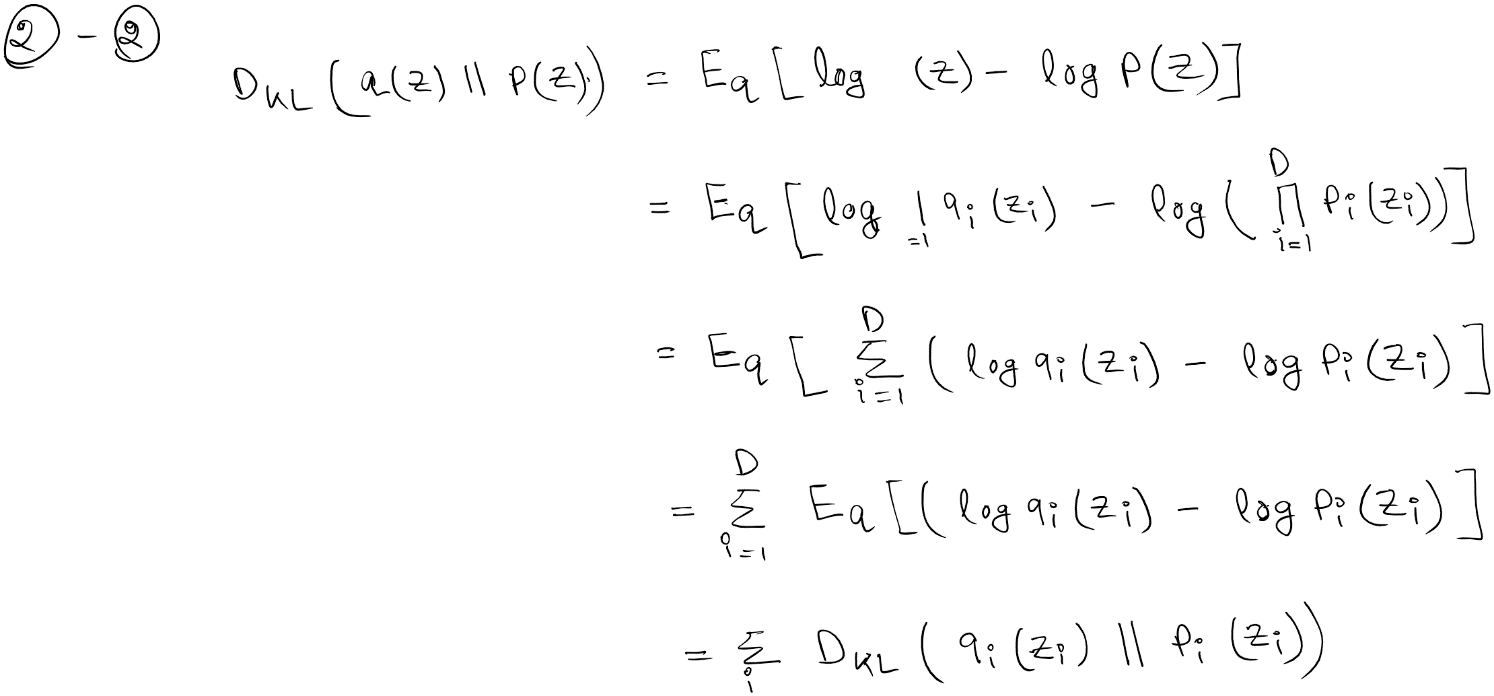 ②-②
D_KL (q(z) || P(z)) = E_q [ log (z) - log P(z)]
= E_q [ log | =1 q_i (z_i) - log ( ∏_{i=1}^{D} P_i (z_i))]
= E_q [ Σ_{i=1}^{D} ( log q_i (z_i) - log P_i (z_i) ]
= Σ_{i=1}^{D} E_q [( log q_i (z_i) - log P_i (z_i) ]
= Σ_i D_KL ( q_i (z_i) || P_i (z_i))